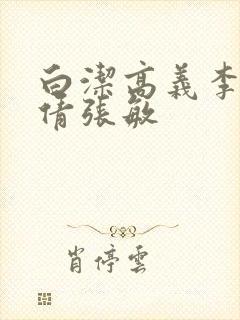 白潔高義李
倩張敏
肖停雲